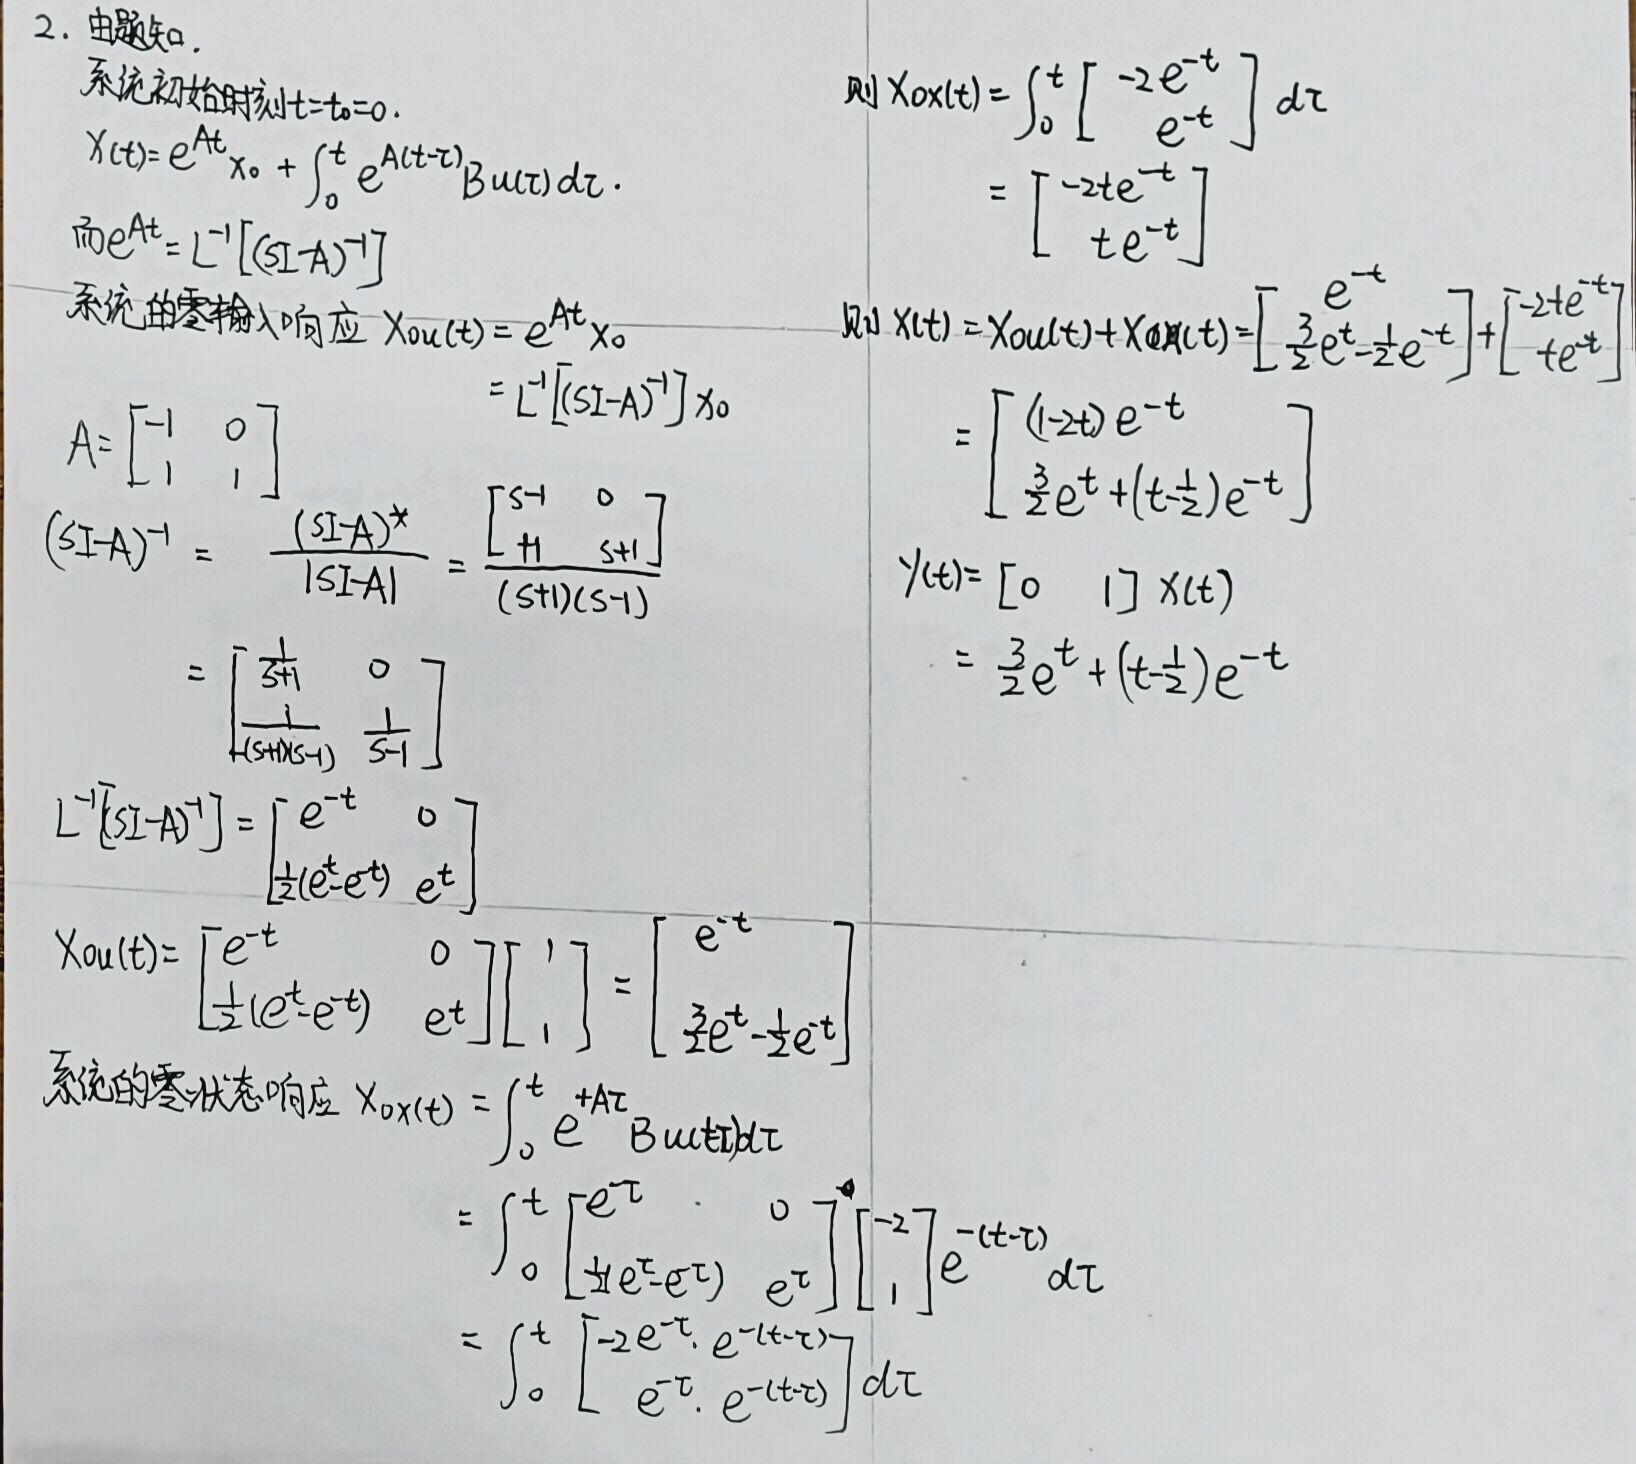 2. 由题知.
系统初始时刻t=t₀=0.
X(t)=e^{At}x₀ + ∫₀^t e^{A(t-τ)}Bu(τ)dτ.
而e^{At}=L⁻¹[(SI-A)⁻¹]
系统的零输入响应 X0u(t)=e^{At}x₀
=L⁻¹[(SI-A)⁻¹]x₀
A=[-1 0
1 1]
(SI-A)⁻¹ = (SI-A)*/|SI-A| = [s-1 0; +1 s+1]/((s+1)(s-1))
= [1/(s+1) 0
1/((s+1)(s-1)) 1/(s-1)]
L⁻¹[(SI-A)⁻¹] = [e^{-t} 0
½(e^t-e^{-t}) e^t]
X0u(t)= [e^{-t} 0; ½(e^t-e^{-t}) e^t][1; 1] = [e^{-t}; 3/2e^t-½e^{-t}]
系统的零状态响应 X0x(t) = ∫₀^t e^{+Aτ}Bu(t-τ)dτ
= ∫₀^t [e^{-τ} 0; ½(e^τ-e^{-τ}) e^τ][-2; 1]e^{-(t-τ)}dτ
= ∫₀^t [-2e^{-τ}·e^{-(t-τ)}; e^{-τ}·e^{-(t-τ)}]dτ
则X0x(t)= ∫₀^t [-2e^{-t}; e^{-t}] dτ
= [-2te^{-t}; te^{-t}]
则 X(t)=X0u(t)+X0x(t)=[e^{-t}; 3/2e^t-½e^{-t}]+[-2te^{-t}; te^{-t}]
= [(1-2t)e^{-t}
3/2e^t+(t-½)e^{-t}]
Y(t)=[0 1]X(t)
= 3/2e^t+(t-½)e^{-t}